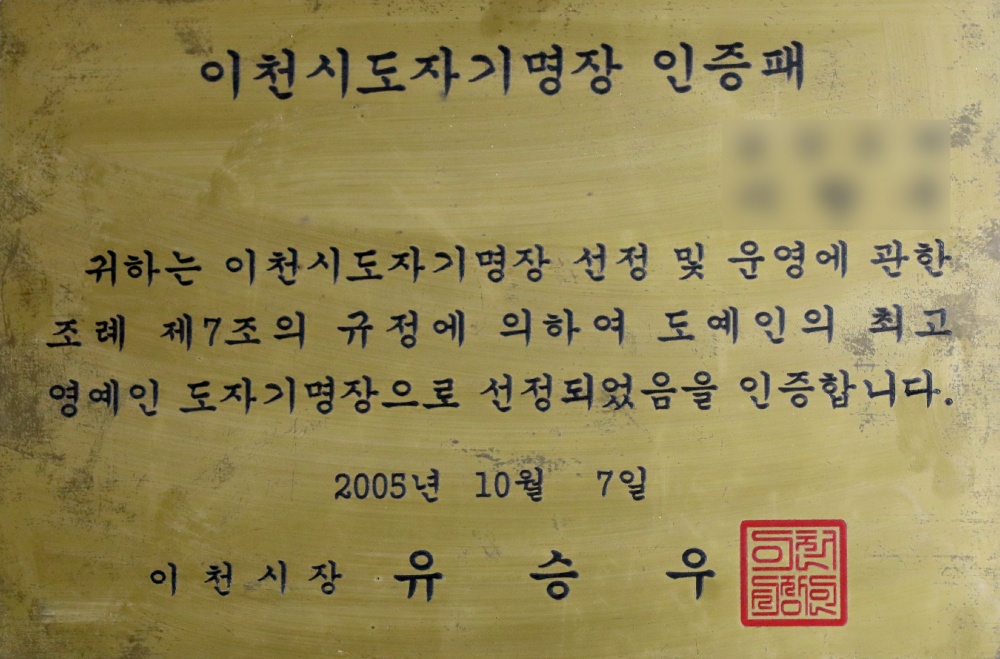 이천시도자기명장 인증패
귀하는 이천시도자기명장 선정 및 운영에 관한
조례 제7조의 규정에 의하여 도예인의 최고
영예인 도자기명장으로 선정되었음을 인증합니다.
2005년 10월 7일
이천시장 유승우